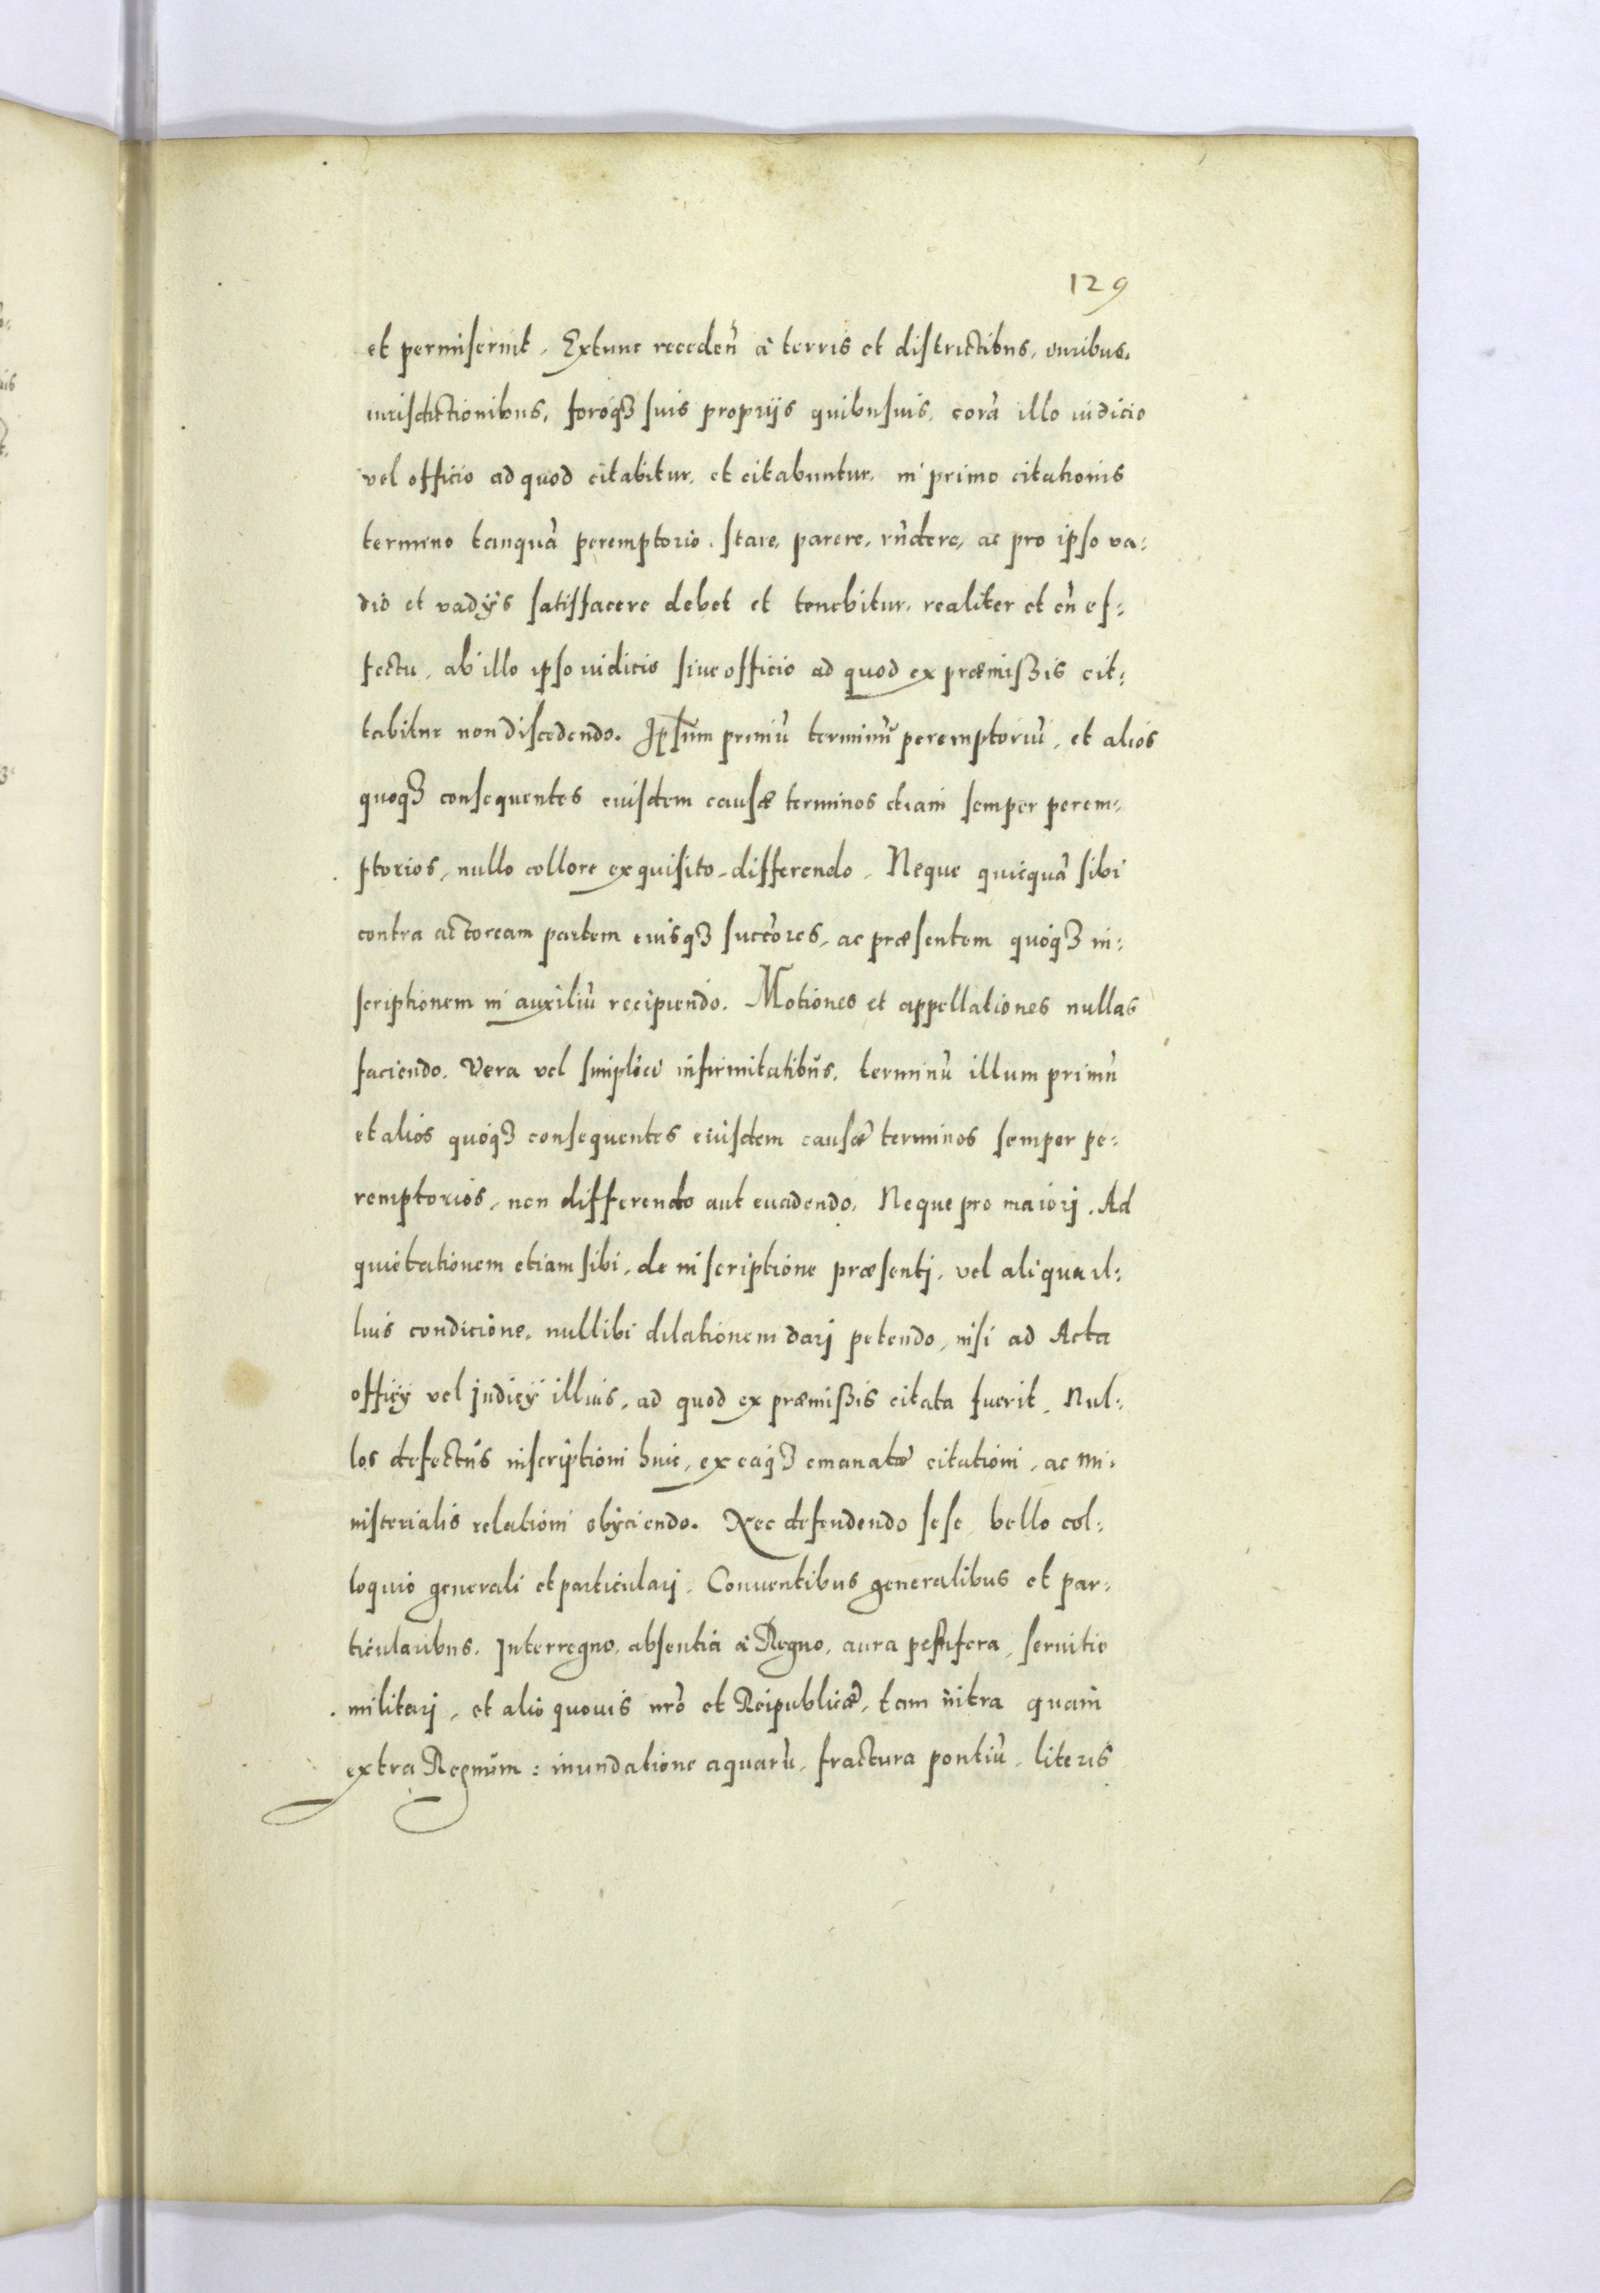 129
et permiserint, Extunc recedeñ à terris et districtibus, iuribus,
iurisdictionibus, foroq3 suis proprijs quibusuis, corã illo iudicio
vel officio ad quod citabitur, et citabuntur, in primo citationis
termino tanquã peremptorio, stare, parere, rñdere, ac pro ipso va:
dio et vadÿs satisfacere debet et tenebitur, realiter et cũ ef:
fectu, ab illo ipso iudicio siue officio ad quod ex præmißis cit:
tabitur non discedendo. Ipsum primũ terminũ peremptoriũ, et alios
quoq3 consequentes eiusdem causæ terminos etiam semper perem:
ptorios, nullo collore exquisito differendo, Neque quicquã sibi
contra actoream partem eiusq3 succõres, ac præsentem quoq3 in:
scriptionem in auxiliũ recipiendo. Motiones et appellationes nullas
faciendo. Vera vel simplici infirmitatibus, terminũ illum primũ
et alios quoq3 consequentes eiusdem causæ terminos semper pe:
remptorios, non differendo aut euadendo, Neque pro maiorj, Ad
quietationem etiam sibi, de inscriptione præsentj, vel aliqua il:
lius condicione, nullibi dilationem darj petendo, nisi ad Acta
officÿ vel Judicÿ illius, ad quod ex præmißis citata fuerit, Nul:
los defectus inscriptioni huic, ex eaq3 emanatæ citationi, ac Mi:
nisterialis relationi obÿciendo. Nec defendendo sese, bello col:
loquio generali et particularj, Conuentibus generalibus et par:
ticularibus, Interregno, absentia à Regno, aura pestifera, seruitio
militarj, et alio quouis nrõ et Reipublicæ, tam intra quam
extra Regnum: inundatione aquarũ, fractura pontiũ, literis